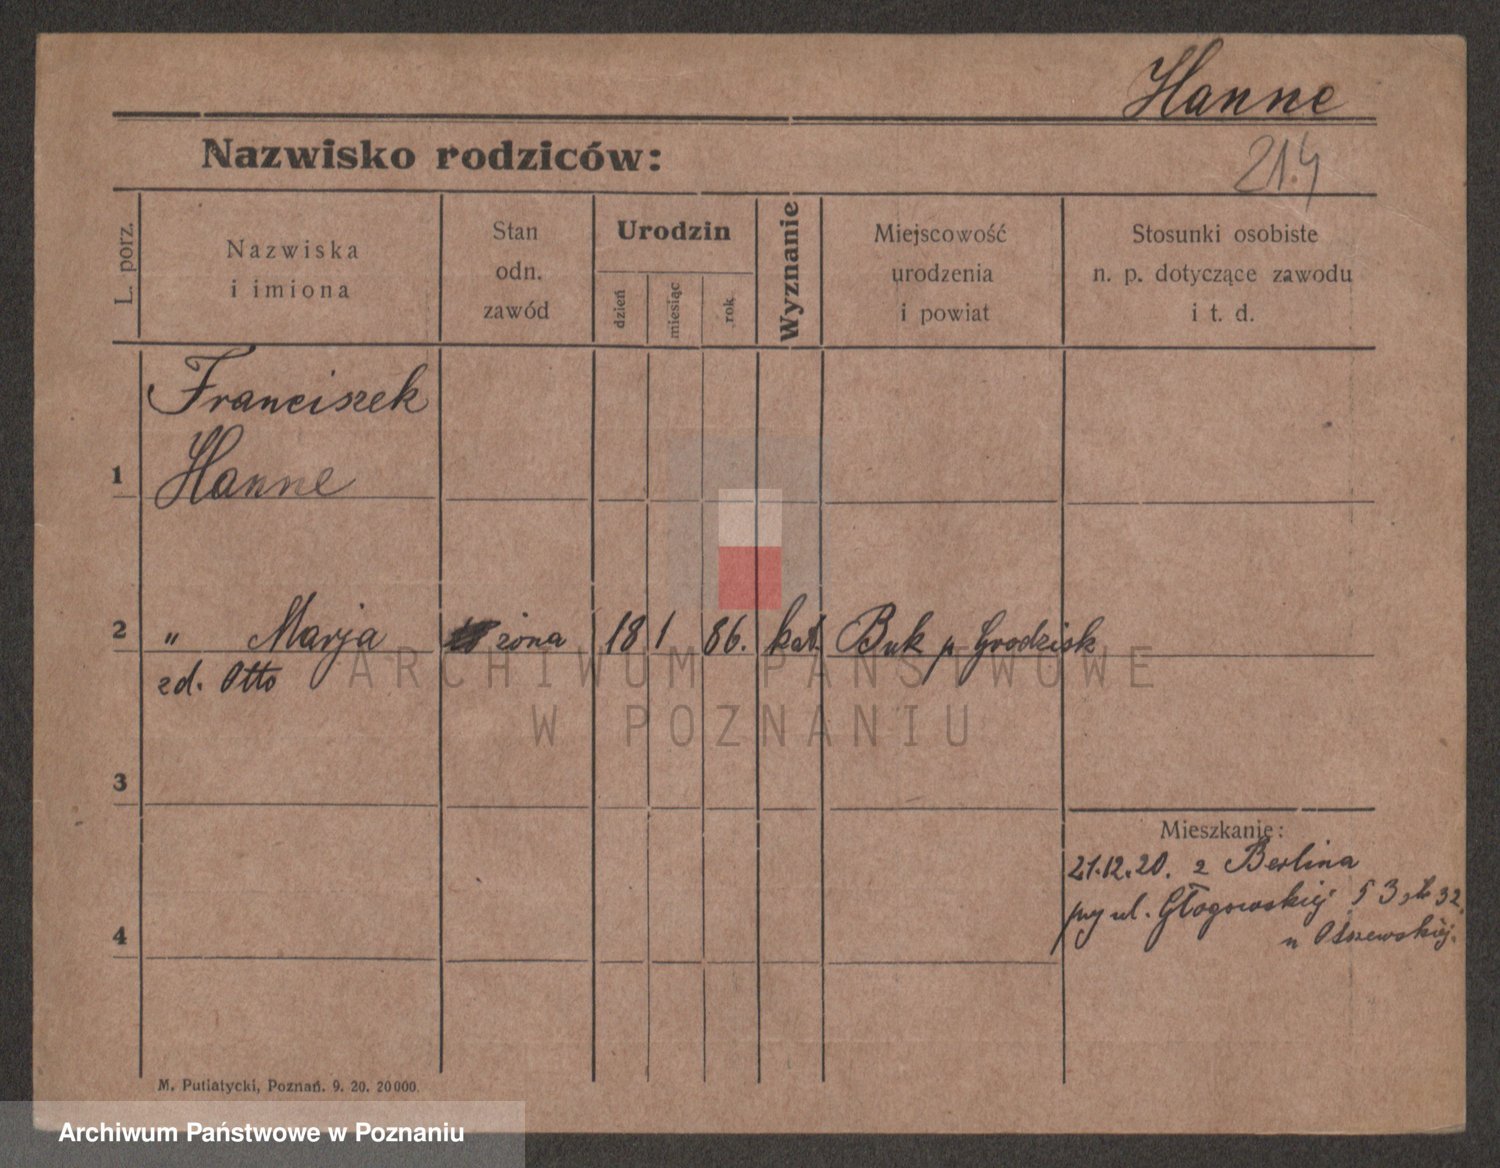 Hanne
Nazwisko rodziców:
21.4
L. porz.
Nazwiska
i imiona
Stan
odn.
zawód
Urodzin
dzień
miesiąc
rok
Wyznanie
Miejscowość
urodzenia
i powiat
Stosunki osobiste
n. p. dotyczące zawodu
i t. d.
Franciszek
1 Hanne
2 " Marja żona 18 1 86. kat. Buk p Grodzisk
zd. Otto
ARCHIWUM PAŃSTWOWE
W POZNANIU
3
Mieszkanie:
21.12.20. z Berlina
przy ul. Głogowskiej 53 32.
4
M. Putiatycki, Poznań. 9. 20. 20000.
Archiwum Państwowe w Poznaniu